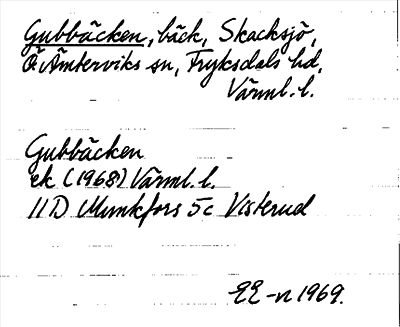 Gubbäcken, bäck, Skacksjö,
Ö. Ämterviks sn, Fryksdals hd,
Värml. l.
Gubbäcken
ek (1968) Värml. l.
11D Munkfors 5c Visterud
EE-n 1969.